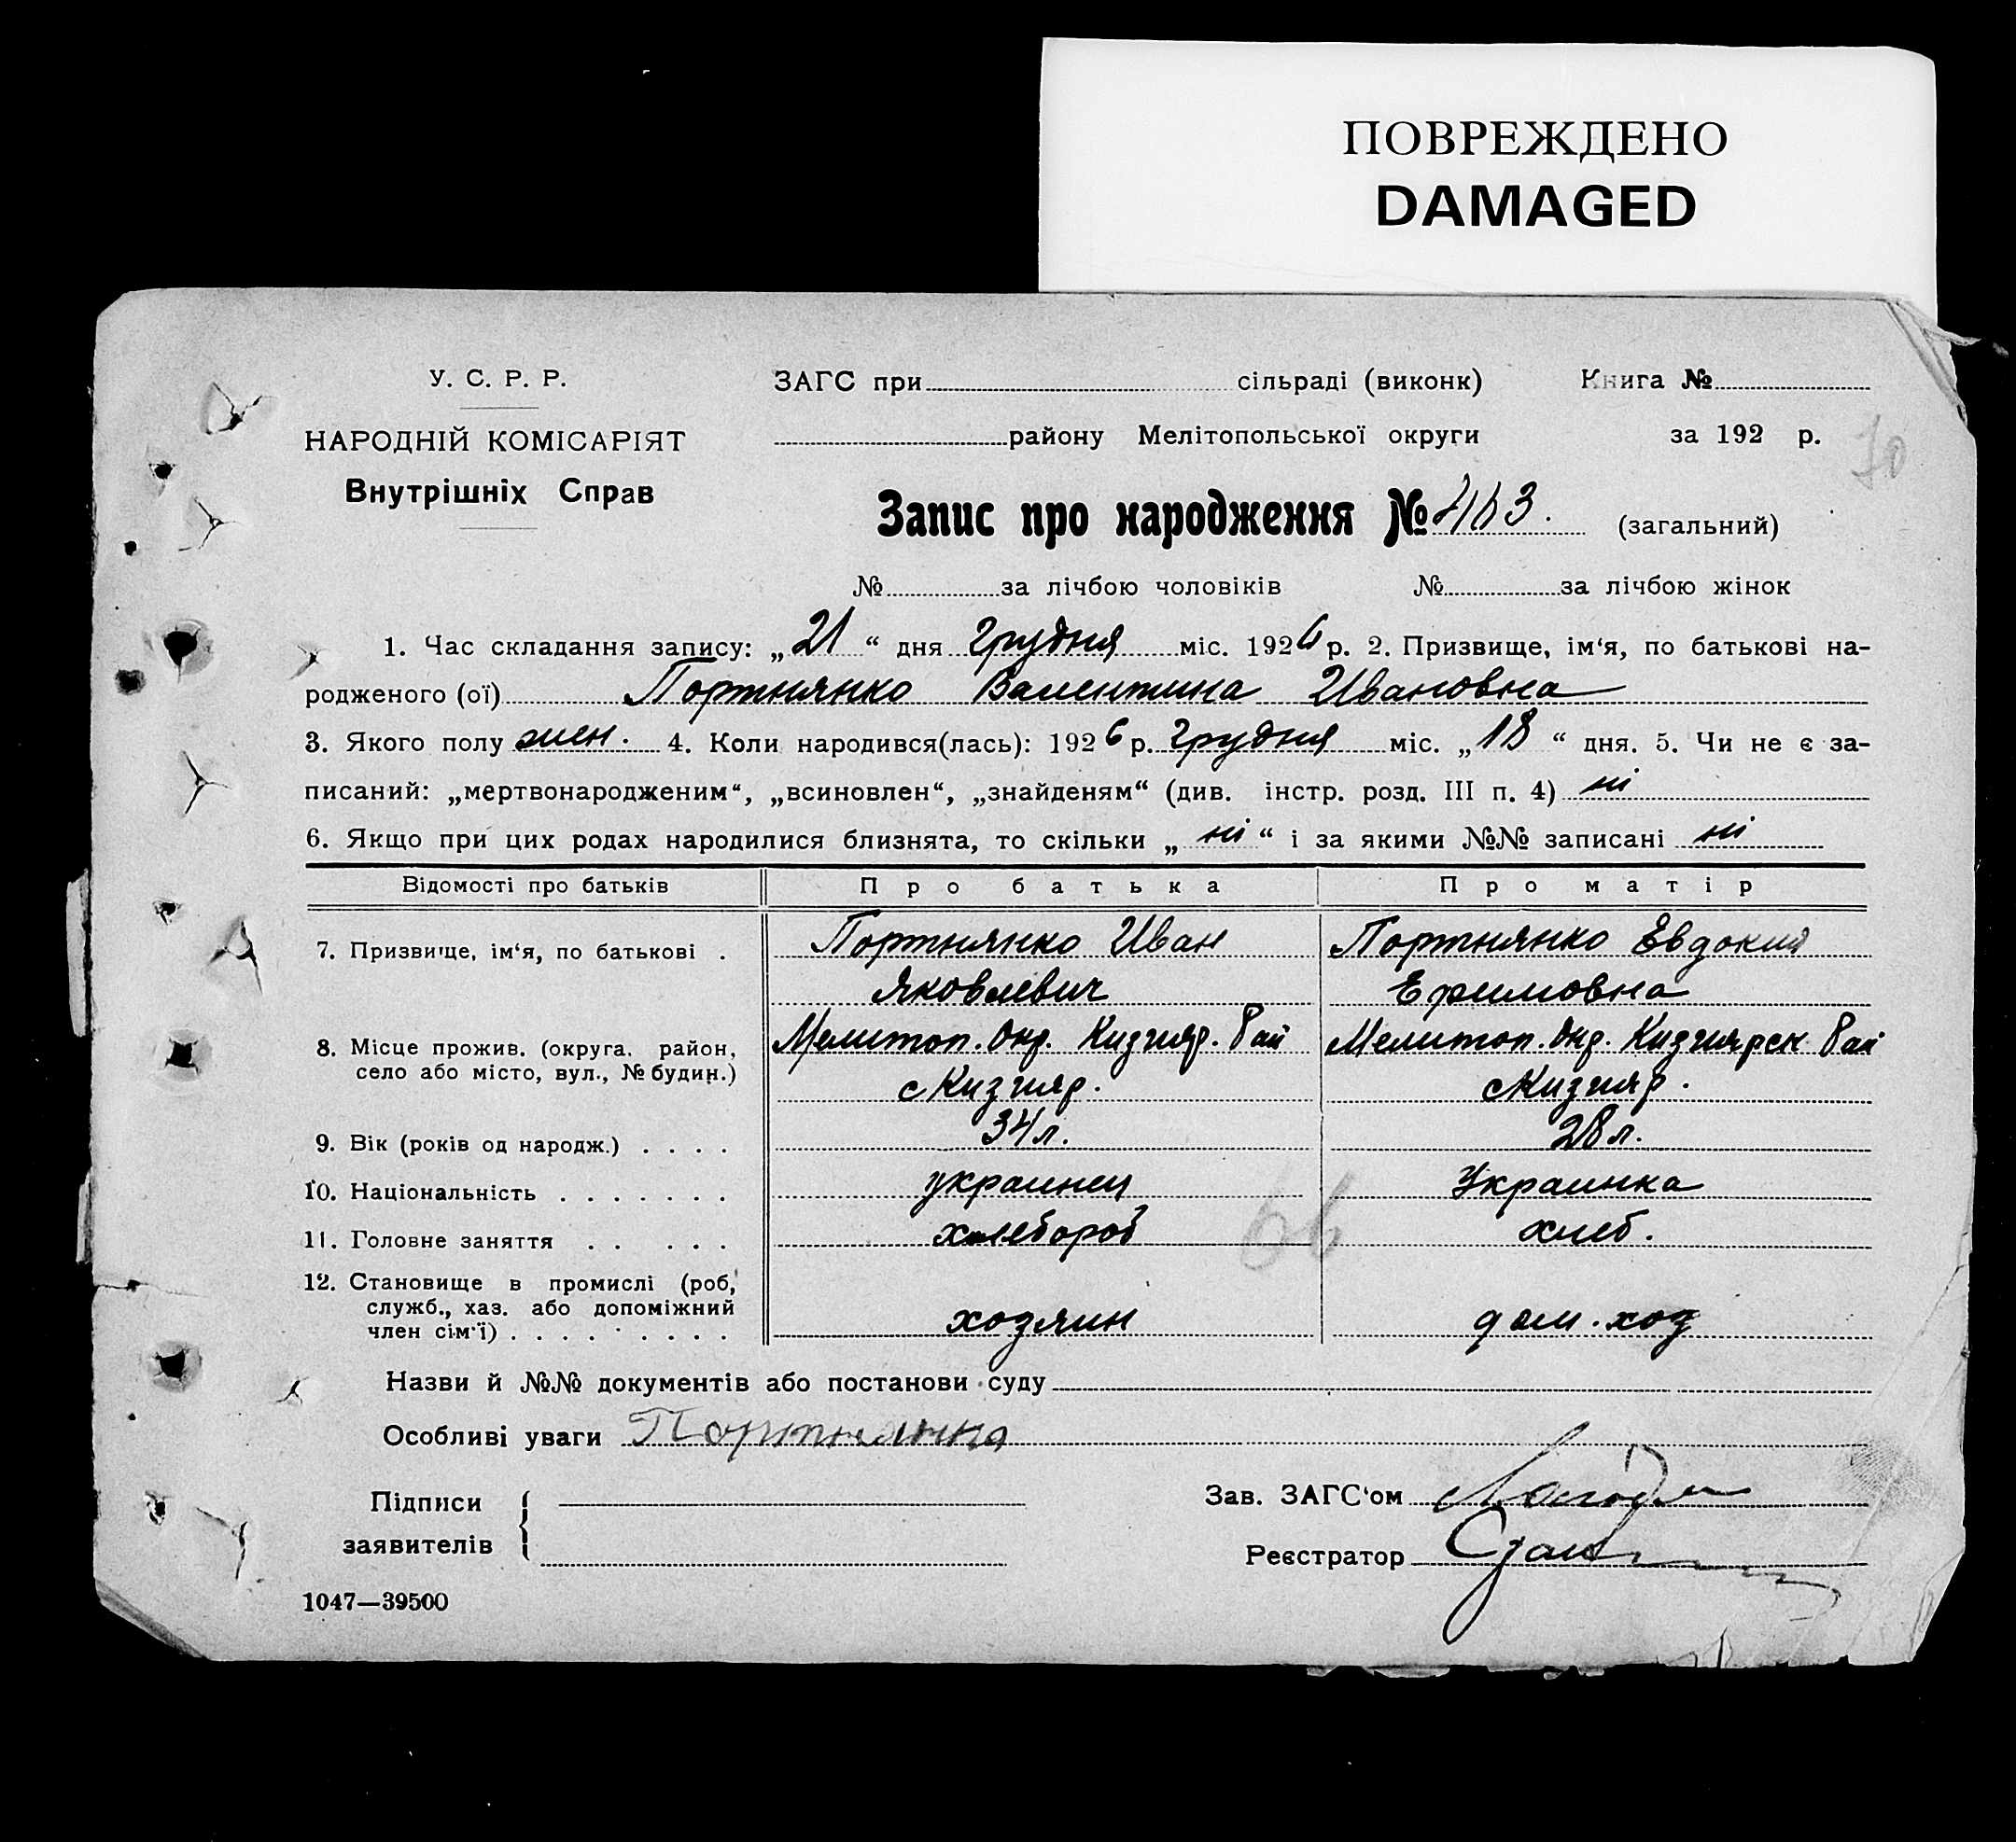 ПОВРЕЖДЕНО
DAMAGED
У. С. Р. Р.
НАРОДНІЙ КОМІСАРІЯТ
Внутрішніх Справ
ЗАГС при сільраді (виконк) Книга №
району Мелітопольської округи за 192 р.
70
Запис про народження № 463. (загальний)
№ за лічбою чоловіків № за лічбою жінок
1. Час складання запису: „21“ дня Грудня міс. 1926 р. 2. Призвище, ім‘я, по батькові на-
родженого (ої) Портнянко Валентина Ивановна
3. Якого полу жен. 4. Коли народився(лась): 1926 р. Грудня міс. „18“ дня. 5. Чи не є за-
писаний: „мертвонародженим“, „всиновлен“, „знайденям“ (див. інстр. розд. III п. 4) ні
6. Якщо при цих родах народилися близнята, то скільки „ні“ і за якими №№ записані ні
Відомості про батьків Про батька Про матір
7. Призвище, ім‘я, по батькові . Портнянко Иван Портнянко Евдокия
Яковлевич Ефимовна
8. Місце прожив. (округа. район, Мелитоп. Окр. Кизияр. Рай Мелитоп. Окр. Кизиярск Рай
село або місто, вул., № будин.) с Кизияр. с Кизияр.
9. Вік (років од народж.) . . . . 34 л. 28 л.
10. Національність . . . . . . . украинец Украинка
11. Головне заняття . . . . . хлебороб хлеб.
12. Становище в промислі (роб,
служб., хаз. або допоміжний
член сім‘ї) . . . . . . . . . хозяин дом. хоз
66
Назви й №№ документів або постанови суду
Особливі уваги Портнянко
Підписи
заявителів
Зав. ЗАГС‘ом
Реєстратор
1047—39500